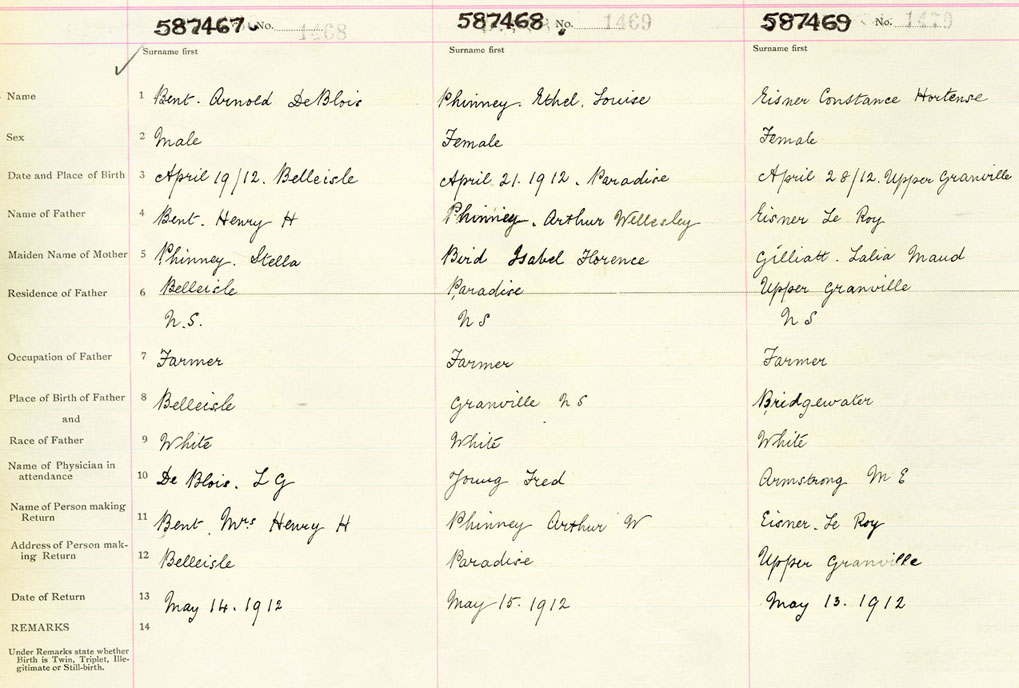 587467 No. 1468 587468 No. 1469 587469 No. 1470
Surname first Surname first Surname first
Name 1 Bent. Arnold DeBlois Phinney. Ethel. Louise Eisner Constance Hortense
Sex 2 Male Female Female
Date and Place of Birth 3 April 19/12. Belleisle April 21. 1912. Paradise April 28/12. Upper Granville
Name of Father 4 Bent. Henry H Phinney. Arthur Wellesley Eisner Le Roy
Maiden Name of Mother 5 Phinney. Stella Bird Isabel Florence Gilliatt. Lalia Maud
Residence of Father 6 Belleisle Paradise Upper Granville
N.S. N S N S
Occupation of Father 7 Farmer Farmer Farmer
Place of Birth of Father 8 Belleisle Granville N S Bridgewater
and
Race of Father 9 White White White
Name of Physician in
attendance 10 De Blois. L G Young Fred Armstrong M E
Name of Person making
Return 11 Bent Mrs Henry H Phinney Arthur W Eisner. Le Roy
Address of Person mak-
ing Return 12 Belleisle Paradise Upper Granville
Date of Return 13 May 14. 1912 May 15. 1912 May 13. 1912
REMARKS 14
Under Remarks state whether
Birth is Twin, Triplet, Ille-
gitimate or Still-birth.